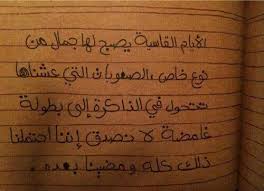 الأيام القاسية يصبح لها جمال من
نوع خاص، الصعوبات التي عشناها
تتحول في الذاكرة إلى بطولة
غامضة لا نصدق إننا احتملنا
ذلك كله ومضينا بعده .